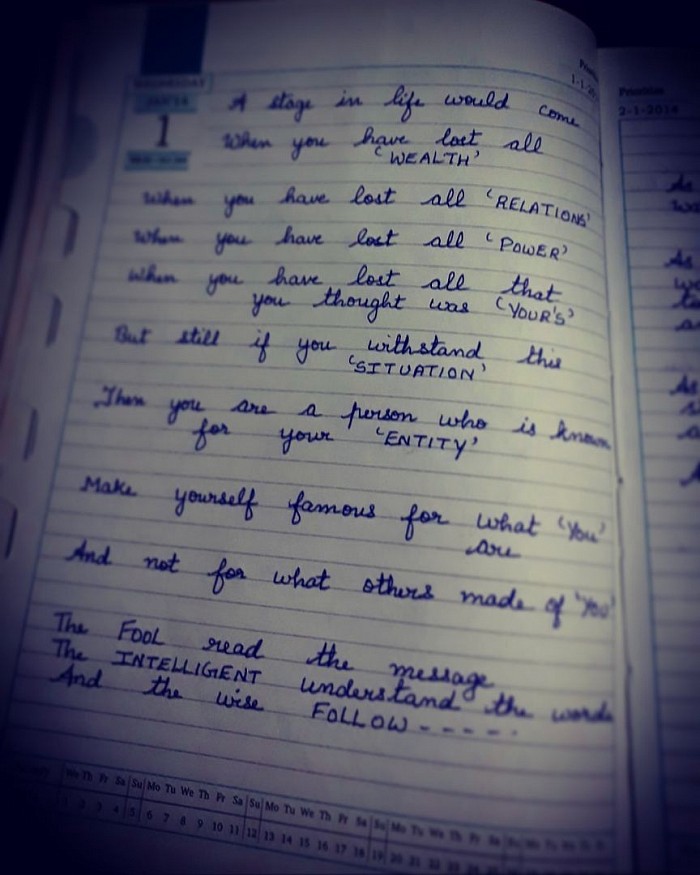 WEDNESDAY
JAN'14
1
1-1-20
A stage in life would come
When you have lost all
'WEALTH'
When you have lost all 'RELATIONS'
When you have lost all 'POWER'
When you have lost all that
you thought was 'YOUR'S'
But still if you withstand this
'SITUATION'
Then you are a person who is known
for your 'ENTITY'
Make yourself famous for what 'You'
are
And not for what others made of 'You'
The FOOL read the message
The INTELLIGENT understand the words
And the wise FOLLOW - - - - - .
Priorities
2-1-2014
As
As
As
We Th Fr Sa Su Mo Tu We Th Fr Sa Su Mo Tu We Th Fr Sa Su Mo Tu We Th Fr Sa
1 2 3 4 5 6 7 8 9 10 11 12 13 14 15 16 17 18 19 20 21 22 23